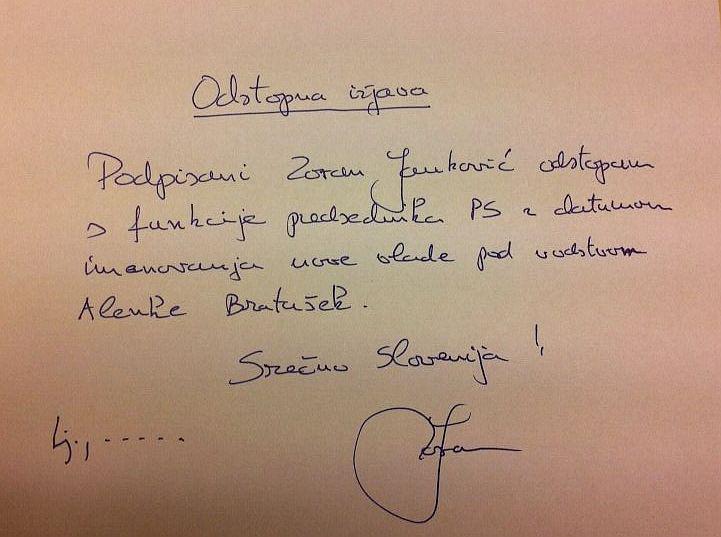 Odstopna izjava
Podpisani Zoran Janković odstopam
s funkcije predsednika PS z datumom
imenovanja nove vlade pod vodstvom
Alenke Bratušek.
Srečno Slovenija!
Lj., -----